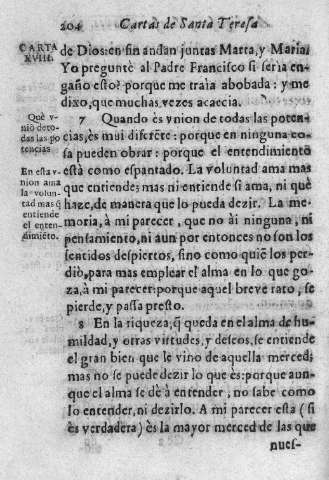 204 Cartas de Santa Teresa
CARTA
XVIII.
de Dios: en fin andan juntas Marta, y Maria.
Yo preguntè al Padre Francisco si seria en-
gaño esto? porque me traìa abobada: y me
dixo, que muchas vezes acaecia.
Què v-
niõ de to-
das las po
tencias.
7 Quando ès vnion de todas las poten-
cias, ès mui diferẽte: porque en ninguna co-
sa pueden obrar: porque el entendimientò
està como espantado. La voluntad ama mas
que entiende; mas ni entiende si ama, ni què
haze, de manera que lo pueda dezir. La me-
moria, à mi parecer, que no ài ninguna, ni
pensamiento, ni aun por entonces no son los
sentidos despiertos, sino como quiẽ los per-
diò, para mas emplear el alma en lo que go-
za, à mi parecer: porque aquel breve rato, se
pierde, y passa presto.
En esta v-
nion ama
la volun-
tad mas q̃
entiende
el enten-
dimiẽto.
8 En la riqueza, q̃ queda en el alma de hu-
mildad, y otras virtudes, y deseos, se entiende
el gran bien que le vino de aquella merced;
mas no se puede dezir lo que ès: porque aun-
que el alma se dè à entender, no sabe como
lo entender, ni dezirlo. A mi parecer esta (si
ès verdadera) ès la mayor merced de las que
nues-